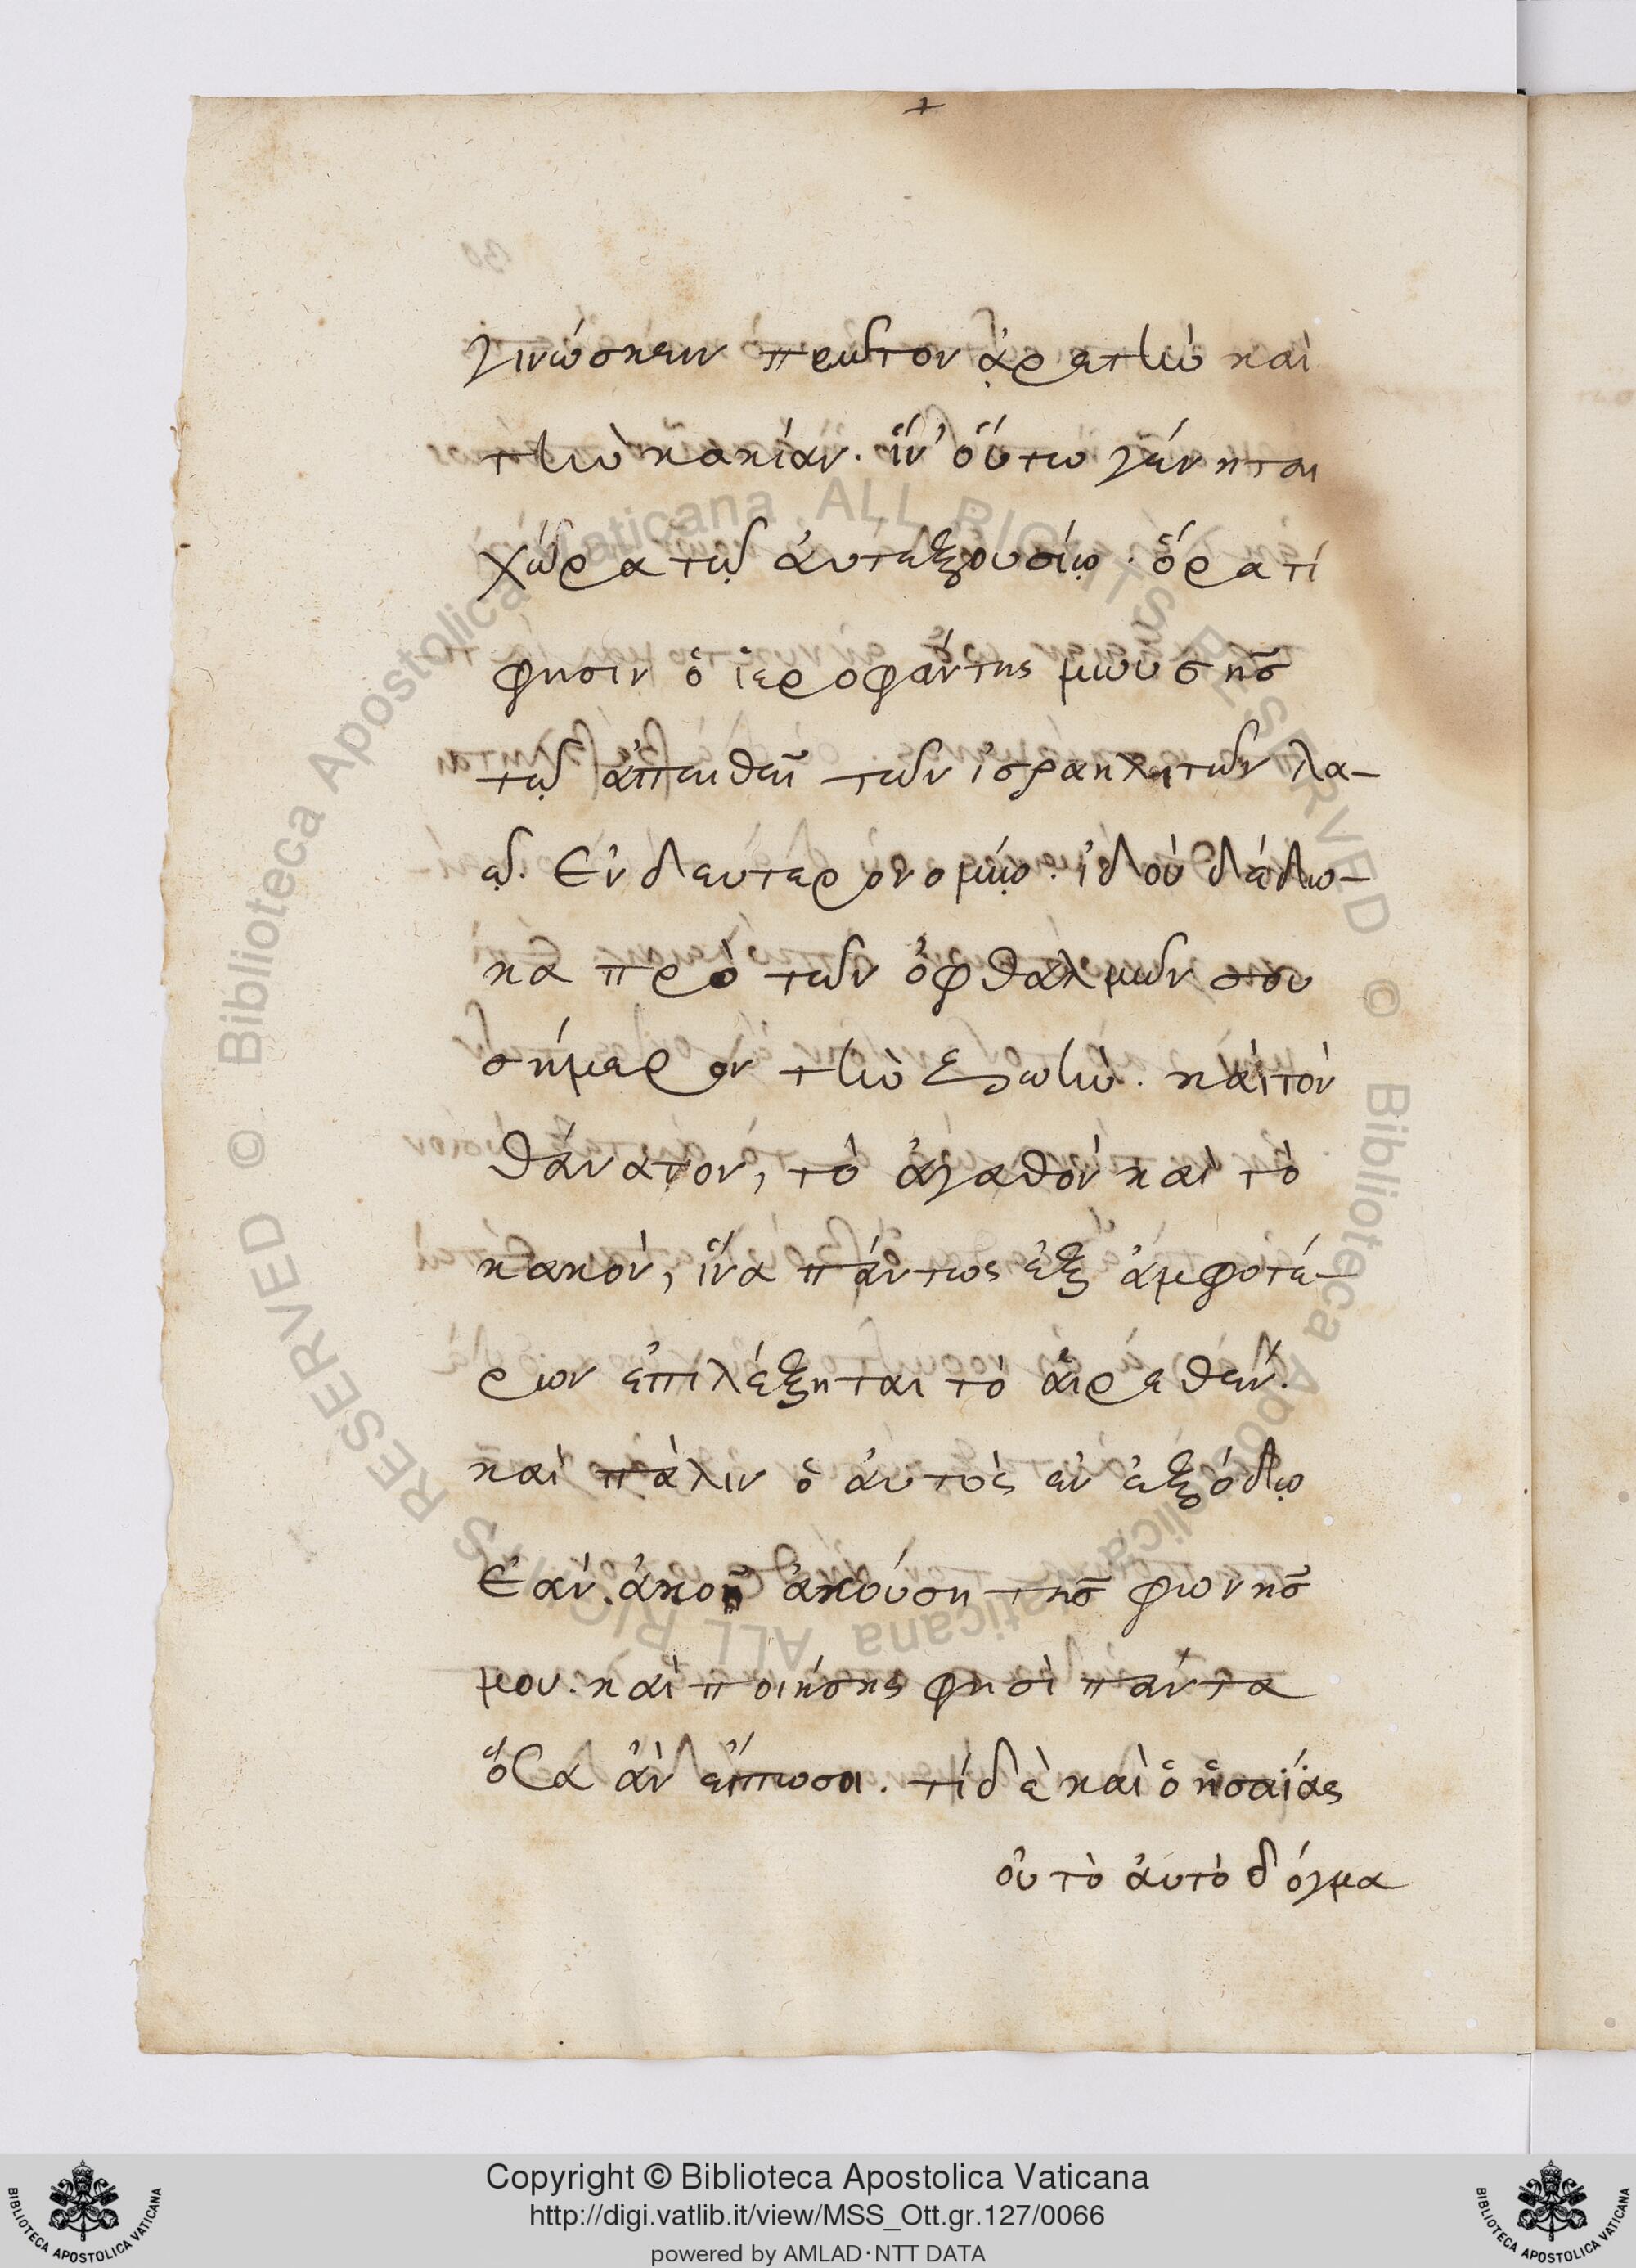 γινώσκειν πρῶτον ἀρετὴν καὶ
τὴν κακίαν. ἵν' ὅυτω γένηται
χώρα τῷ ἀυτεξουσίῳ. ὅρα τί
φησιν ὁ ἱεροφάντης μωυσῆς
τῷ ἀπειθεῖ τῶν ἰσραηλιτῶν λα-
ῷ. Ἐν δευτερονομίῳ. ἰδοὺ δέδω-
κα πρὸ τῶν ὀφθαλμῶν σου
σήμερον τὴν ζωὴν. καὶ τὸν
θάνατον, τὸ ἀγαθὸν καὶ τὸ
κακὸν, ἵνα πάντως ἐξ ἀμφοτέ-
ρων ἐπιλέξηται τὸ ἁιρεθὲν.
καὶ πάλιν ὁ ἀυτὸς ἐν ἐξόδῳ
Ἐὰν ἀκοῇ ἀκούση τῆς φωνῆς
μου. καὶ ποιήσης φησὶ πάντα
ὅσα ἂν εἴπωσοι. τί δὲ καὶ ὁ ἡσαΐας
οὐ τὸ ἀυτὸ δόγμα
Copyright © Biblioteca Apostolica Vaticana
http://digi.vatlib.it/view/MSS_Ott.gr.127/0066
powered by AMLAD·NTT DATA
BIBLIOTECA APOSTOLICA VATICANA
BIBLIOTECA APOSTOLICA VATICANA